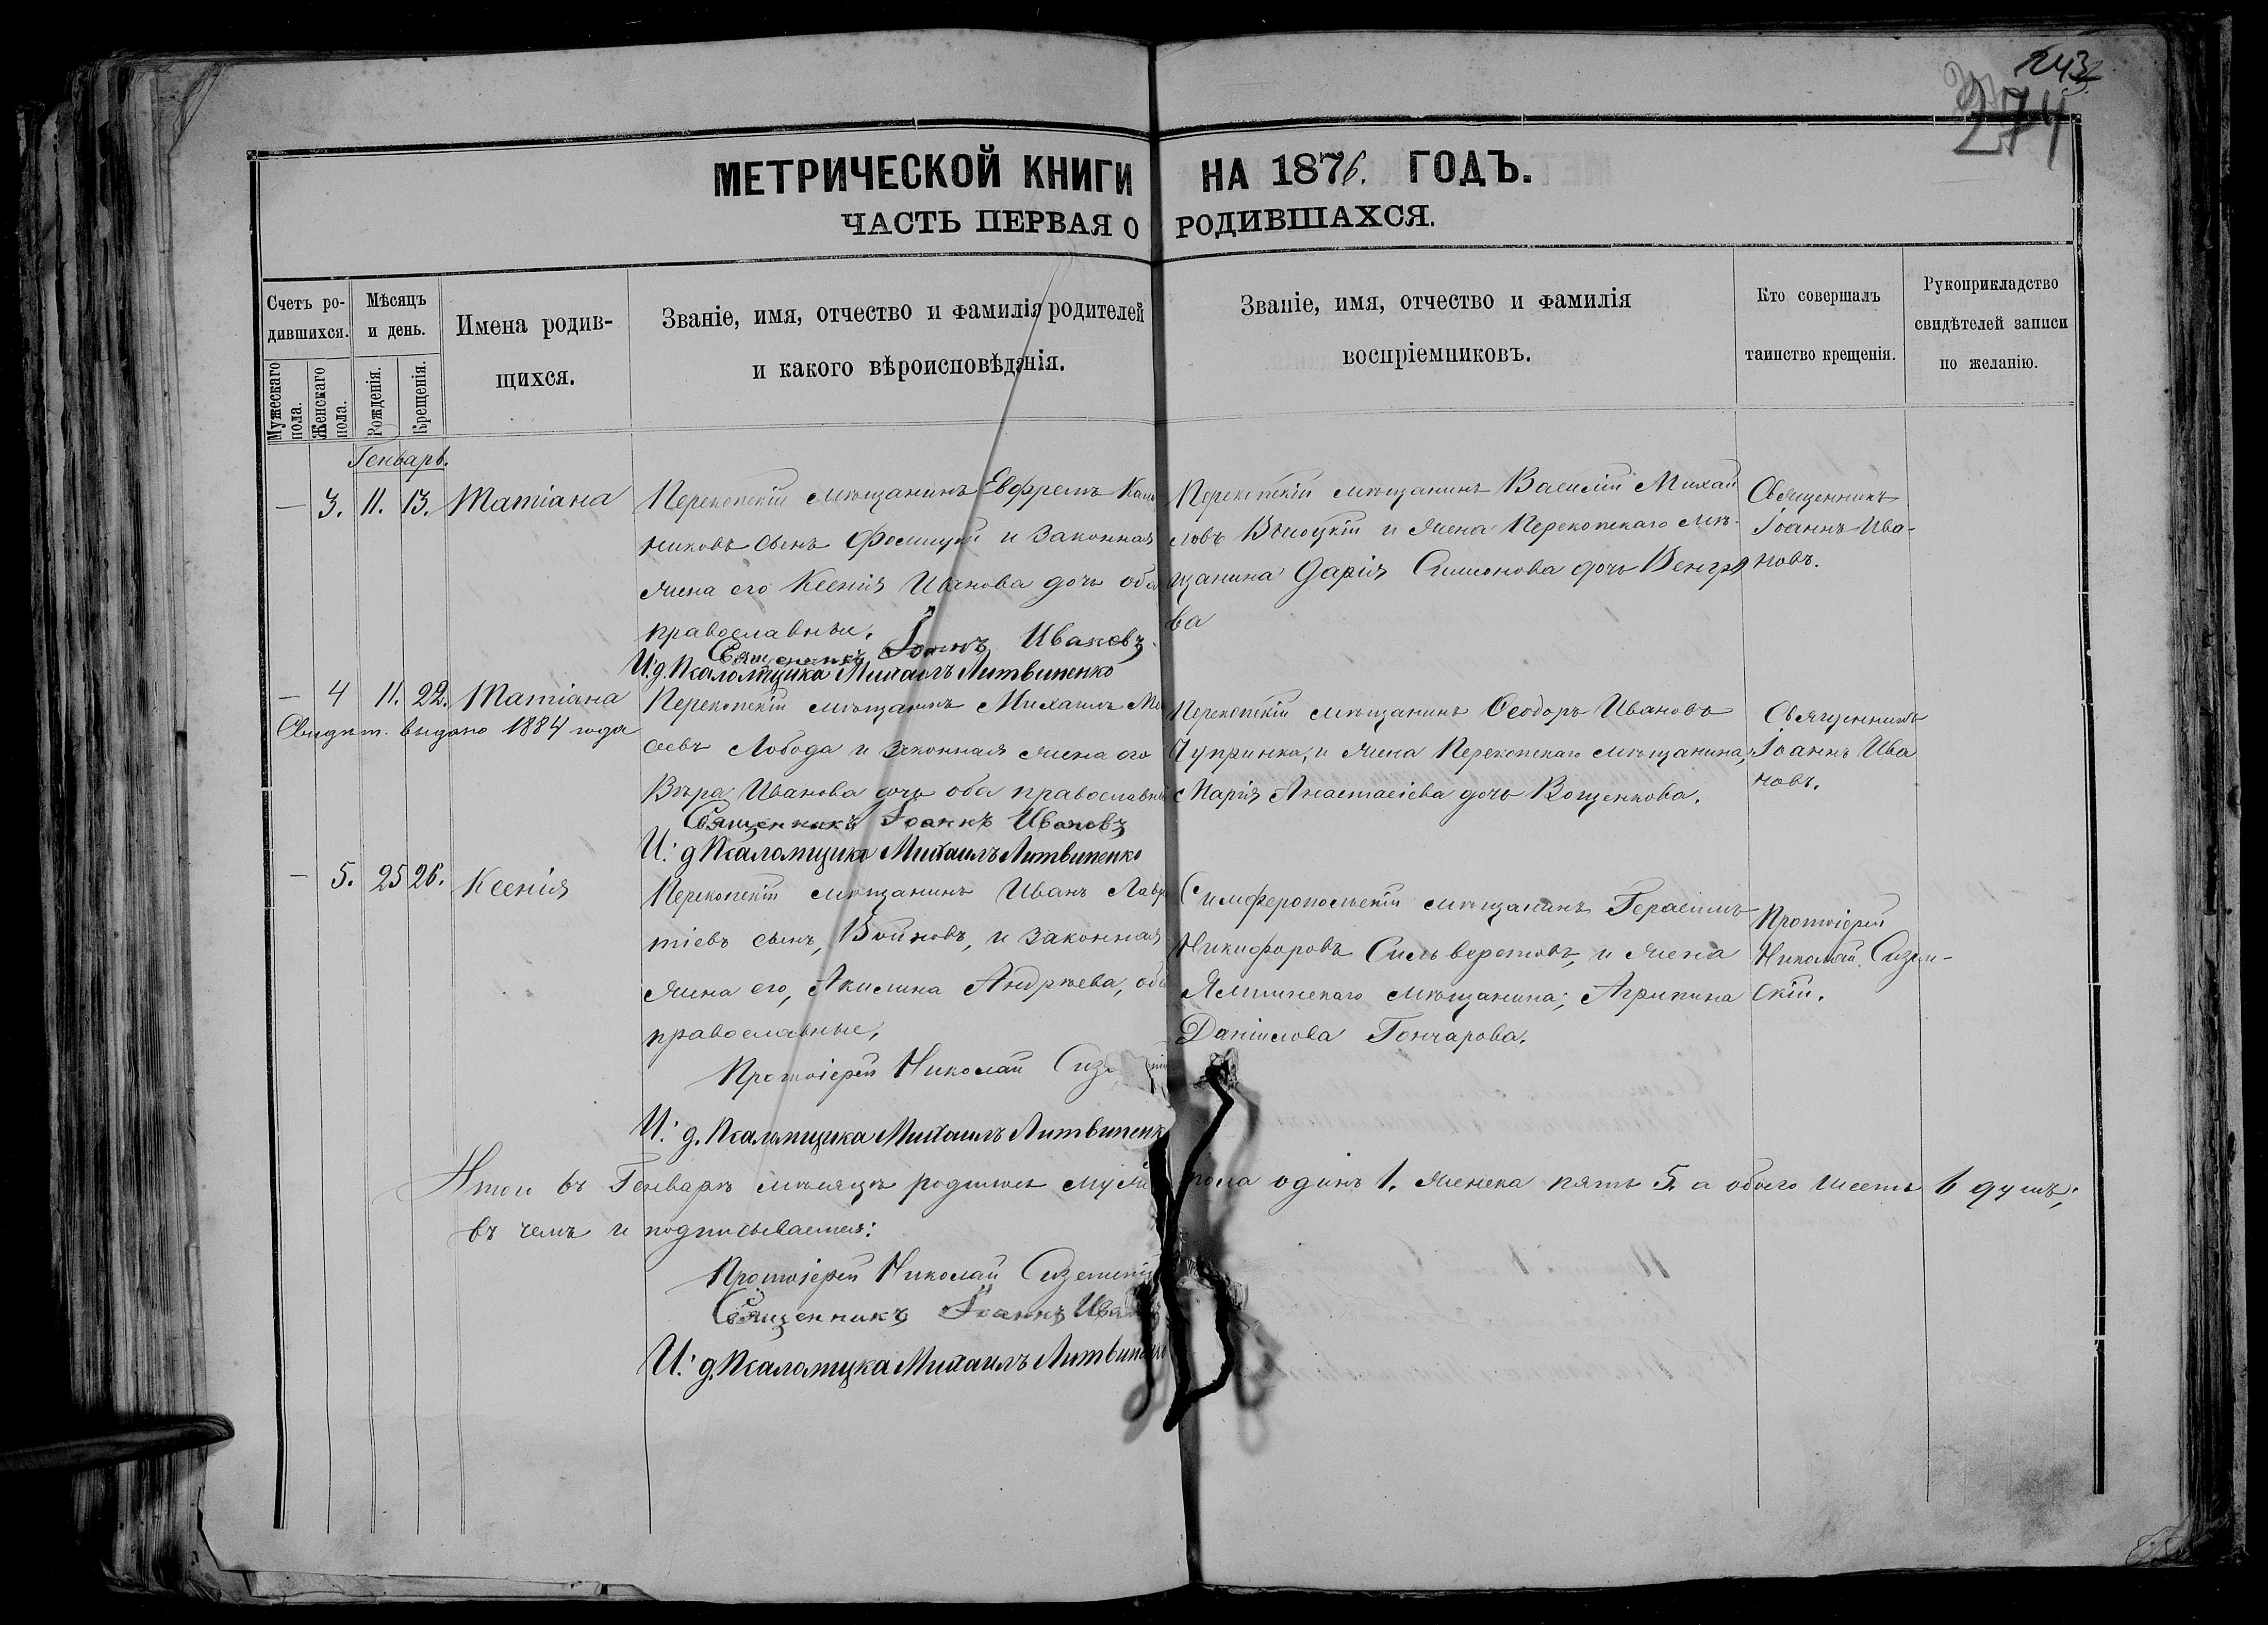 243
274
МЕТРИЧЕСКОЙ КНИГИ НА 1876. ГОДЪ.
ЧАСТЬ ПЕРВАЯ О РОДИВШАХСЯ.
Счетъ ро-
дившихся.
Мужескаго пола.
Женскаго пола.
Мѣсяцъ
и день.
Рожденія.
Крещенія.
Имена родив-
щихся.
Званіе, имя, отчество и фамилія родителей
и какого вѣроисповѣданія.
Званіе, имя, отчество и фамилія
воспріемниковъ.
Кто совершалъ
таинство крещенія.
Рукоприкладство
свидѣтелей записи
по желанію.
Генварь.
— 3. 11. 13. Татіана
Перекопскій мѣщанинъ Евфремъ
никовъ сынъ и законная
жена его Ксенія Иванова дочь оба
православные.
Священникъ Іоаннъ Ивановъ
И. д. Псаломщика Михаилъ Литвиненко
Перекопскій мѣщанинъ Василій Михай
ловъ и жена Перекопскаго мѣ-
щанина Дарія Симонова дочь Венгро
ва
Священникъ
Іоаннъ Ива-
новъ.
— 4 11. 22. Татіана
Свидѣт. выдано 1884 года
Перекопскій мѣщанинъ Михаилъ Мо
сеевъ Лобода и законная жена его
Вѣра Иванова дочь оба православные
Священникъ Іоаннъ Ивановъ
И. д Псаломщика Михаилъ Литвиненко
Перекопскій мѣщанинъ Ѳеодоръ Ивановъ
Чупринка, и жена Перекопскаго мѣщанина,
Марія Анастасіева дочь Вощенкова.
Священникъ
Іоаннъ Ива
новъ.
— 5. 25 26. Ксенія
Перекопскій мѣщанинъ Иванъ Лавре
тіевъ сынъ, Войновъ, и законная
жена его, Акилина Андрѣева, оба
православные;
Протоіерей Николай
И. д. Псаломщика Михаилъ Литвиненк
Симферопольскій мѣщанинъ Герасимъ
Никифоровъ Сильверстовъ, и жена
мѣщанина; Агрипина
Даніилова Гончарова.
Протоіерей
Николай
скій.
Итого въ Генварѣ мѣсяцѣ родилось муж пола одинъ 1. женска пять 5. а обоего шесть 6 душъ;
въ чемъ и подписываемся:
Протоіерей Николай
Священникъ Іоаннъ Ива
И. д. Псаломщка Михаилъ Литвиненко